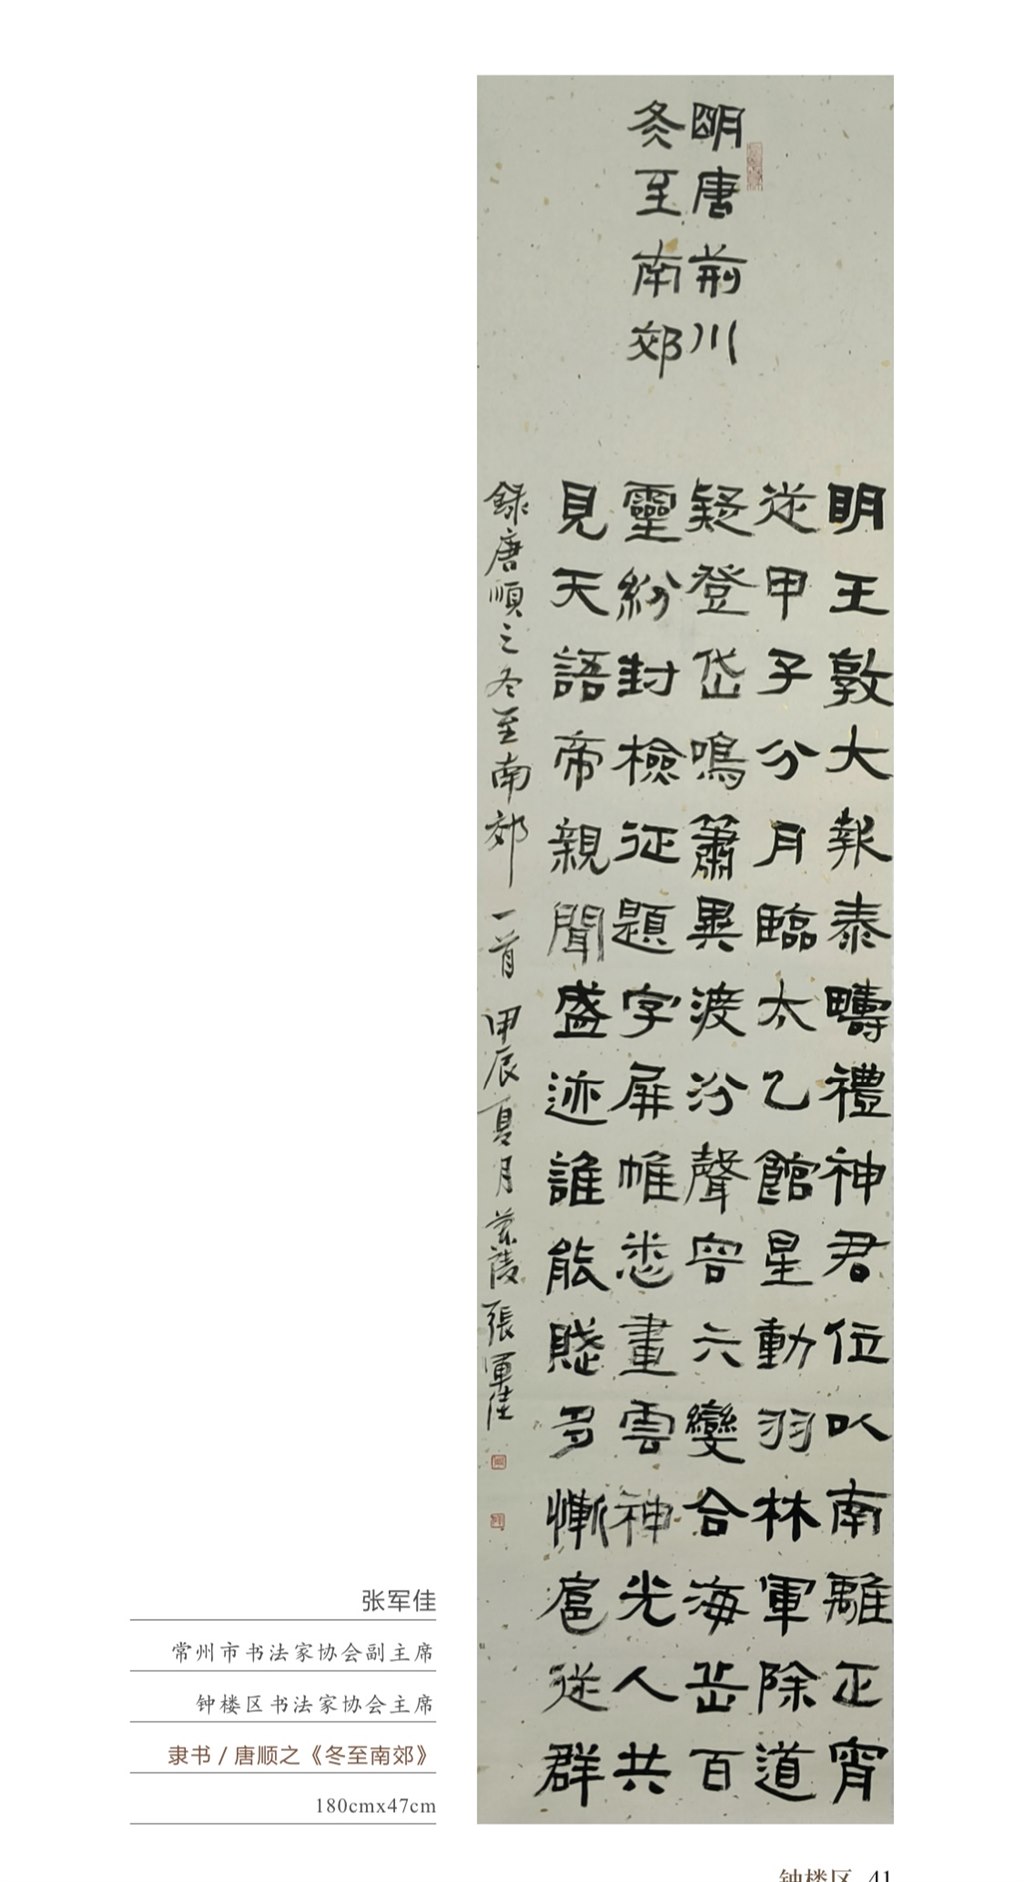 明唐荆川
冬至南郊
明王敦大報泰疇禮神君位以南離正宵
從甲子分月臨太乙館星動羽林軍除道
疑登岱鳴簫異渡汾聲容六變合海岳百
靈紛封檢征題字屏帷悉畫雲神光人共
見天語帝親聞盛迹誰能賦多慚扈從群
録唐順之冬至南郊一首甲辰夏月蘭陵張軍佳
张军佳
常州市书法家协会副主席
钟楼区书法家协会主席
隶书 / 唐顺之《冬至南郊》
180cmx47cm
钟楼区 41